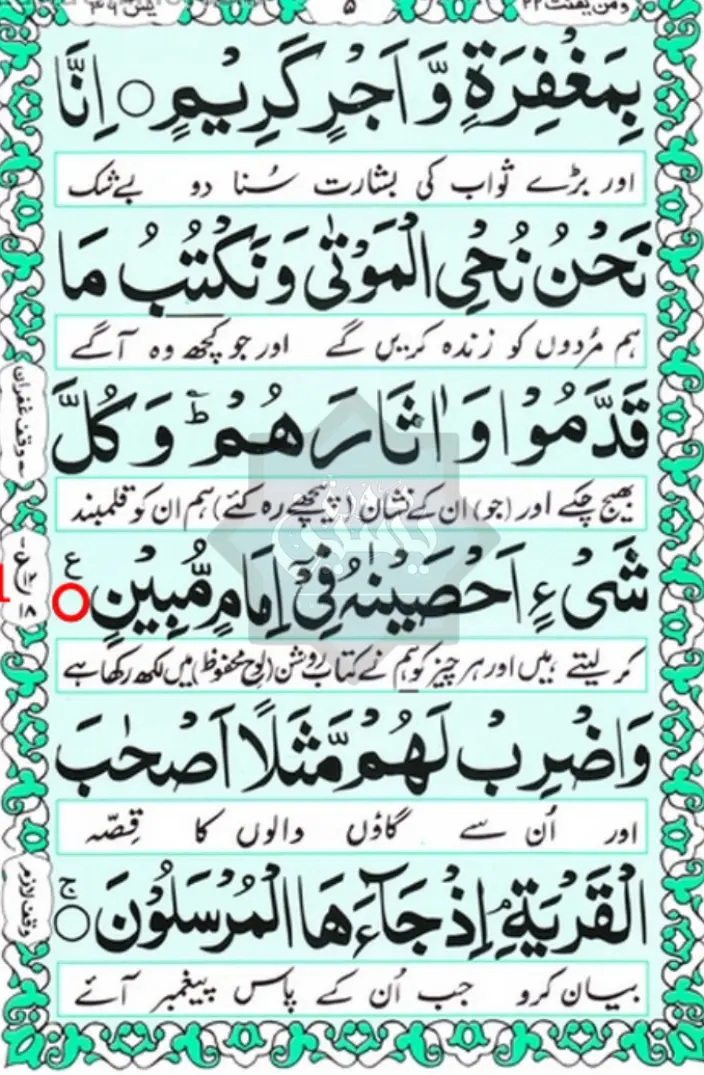 ومن یقنت ۲۲
۵
یٰسٓ ۳۶
بِمَغْفِرَةٍ وَّ اَجْرٍ كَرِیْمٍ ○ اِنَّا
اور بڑے ثواب کی بشارت سُنا دو بےشک
نَحْنُ نُحْیِ الْمَوْتٰی وَ نَكْتُبُ مَا
ہم مُردوں کو زندہ کریں گے اور جو کچھ وہ آگے
قَدَّمُوْا وَ اٰثَارَهُمْ ؕ وَ كُلَّ
وقف غفران
بھیج چکے اور (جو) ان کے نشان (پیچھے رہ گئے) ہم ان کو قلمبند
شَیْءٍ اَحْصَیْنٰهُ فِیْۤ اِمَامٍ مُّبِیْنٍ ○ ع
کر لیتے ہیں اور ہر چیز کو ہم نے کتاب روشن (لوح محفوظ) میں لکھ رکھا ہے
وَ اضْرِبْ لَهُمْ مَّثَلًا اَصْحٰبَ
اور اُن سے گاؤں والوں کا قِصّہ
الْقَرْیَةِ ۘ اِذْ جَآءَهَا الْمُرْسَلُوْنَ ○ ج
وقف لازم
بیان کرو جب اُن کے پاس پیغمبر آئے